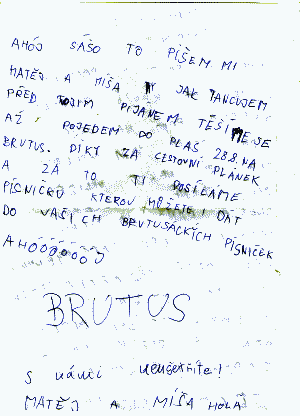 AHOJ SÁŠO TO PÍŠEM MI
MATĚJ A MÍŠA JAK TANCUJEM
PŘED PIJÁNEM TĚŠÍME SE
AŽ POJEDEM DO PLAS 28.8. NA
BRUTUS. DÍKY ZA CESTOVNÍ PLÁNEK
A ZA TO TI POSÍLÁME
PÍSNIČKU KTEROU MŮŽETE I DÁT
DO VAŠICH BRUTUSÁCKÝCH PÍSNIČEK
AHOOOOOOJ
BRUTUS
S náma
MATĚJ A MÍŠA HOLÁ